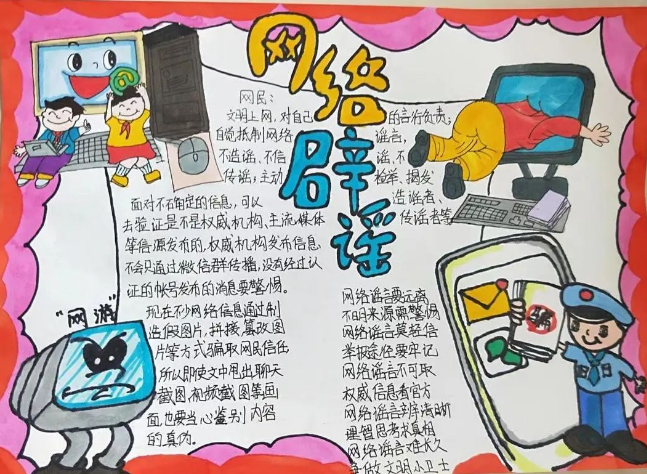 网络辟谣
网民:
文明上网,对自己的言行负责;
自觉抵制网络谣言,
不造谣、不信谣、不
传谣,主动检举、揭发
造谣者、
传谣者等
面对不确定的信息,可以
去验证是不是权威机构、主流媒体
等信源发布的,权威机构发布信息,
不会只通过微信群传播,没有经过认
证的帐号发布的消息要警惕。
"网游"
现在不少网络信息通过制
造假图片,拼接、篡改图
片等方式骗取网民信任
所以即使文中甩出聊天
截图、视频截图等画
面也要当心鉴别内容
的真伪。
网络谣言要远离
不明来源需警惕
网络谣言莫轻信
举报途径要牢记
网络谣言不可取
权威信息看官方
网络谣言到清晰
理智思考求真相
网络谣言难长久
争做文明小卫士
骗